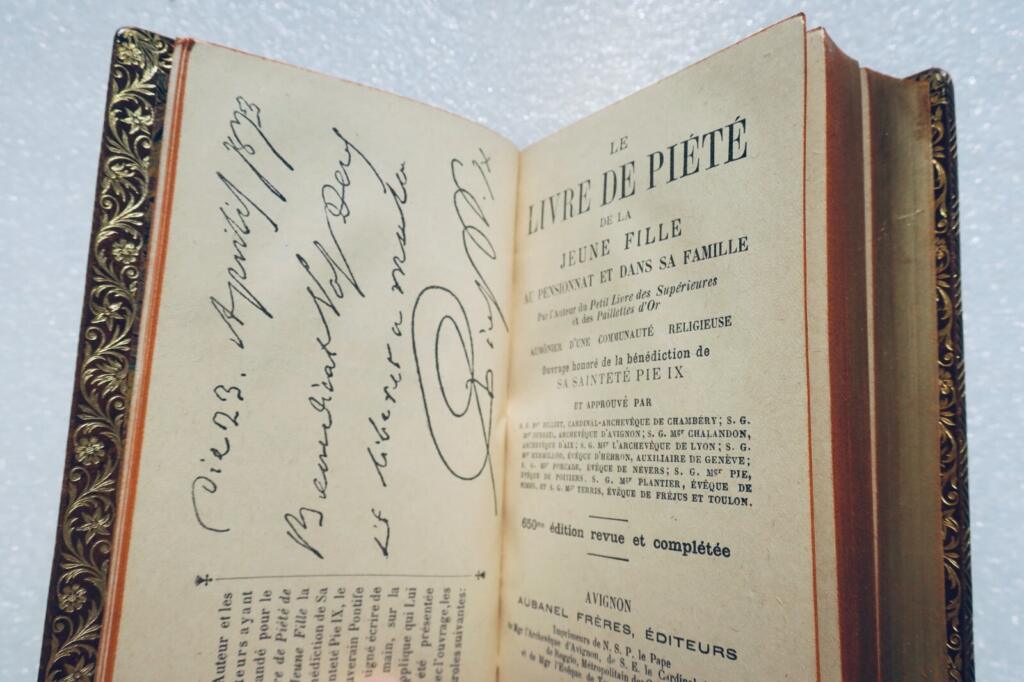 Die 23. Aprilis 1873
Benedicat Vos Deus
et liberet a malo
Pius IX
Auteur et les
teurs ayant
mandé pour le
re de Piété de
Jeune Fille la
nédiction de Sa
nteté Pie IX, le
uverain Pontife
igné écrire de
main, sur la
pplique qui Lui
été présentée
ec l'ouvrage, les
roles suivantes:
LE
LIVRE DE PIÉTÉ
DE LA
JEUNE FILLE
AU PENSIONNAT ET DANS SA FAMILLE
Par l'Auteur du Petit Livre des Supérieures
et des Paillettes d'Or
AUMÔNIER D'UNE COMMUNAUTÉ RELIGIEUSE
Ouvrage honoré de la bénédiction de
SA SAINTETÉ PIE IX
ET APPROUVÉ PAR
S. E. Mgr BILLIET, CARDINAL-ARCHEVÊQUE DE CHAMBÉRY; S. G.
Mgr DUBREIL, ARCHEVÊQUE D'AVIGNON; S. G. Mgr CHALANDON,
ARCHEVÊQUE D'AIX; S. G. Mgr L'ARCHEVÊQUE DE LYON; S. G.
Mgr MERMILLOD, ÉVÊQUE D'HÉBRON, AUXILIAIRE DE GENÈVE;
S. G. Mgr FORCADE, ÉVÊQUE DE NEVERS; S. G. Mgr PIE,
ÉVÊQUE DE POITIERS. S. G. Mgr PLANTIER, ÉVÊQUE DE
NIMES, ET S. G. Mgr TERRIS, ÉVÊQUE DE FRÉJUS ET TOULON.
650me édition revue et complétée
AVIGNON
AUBANEL FRÈRES, ÉDITEURS
Imprimeurs de N. S. P. le Pape
de Mgr l'Archevêque d'Avignon, de S. E. le Cardinal
de Reggio, Métropolitain des
et de Mgr l'Évêque de